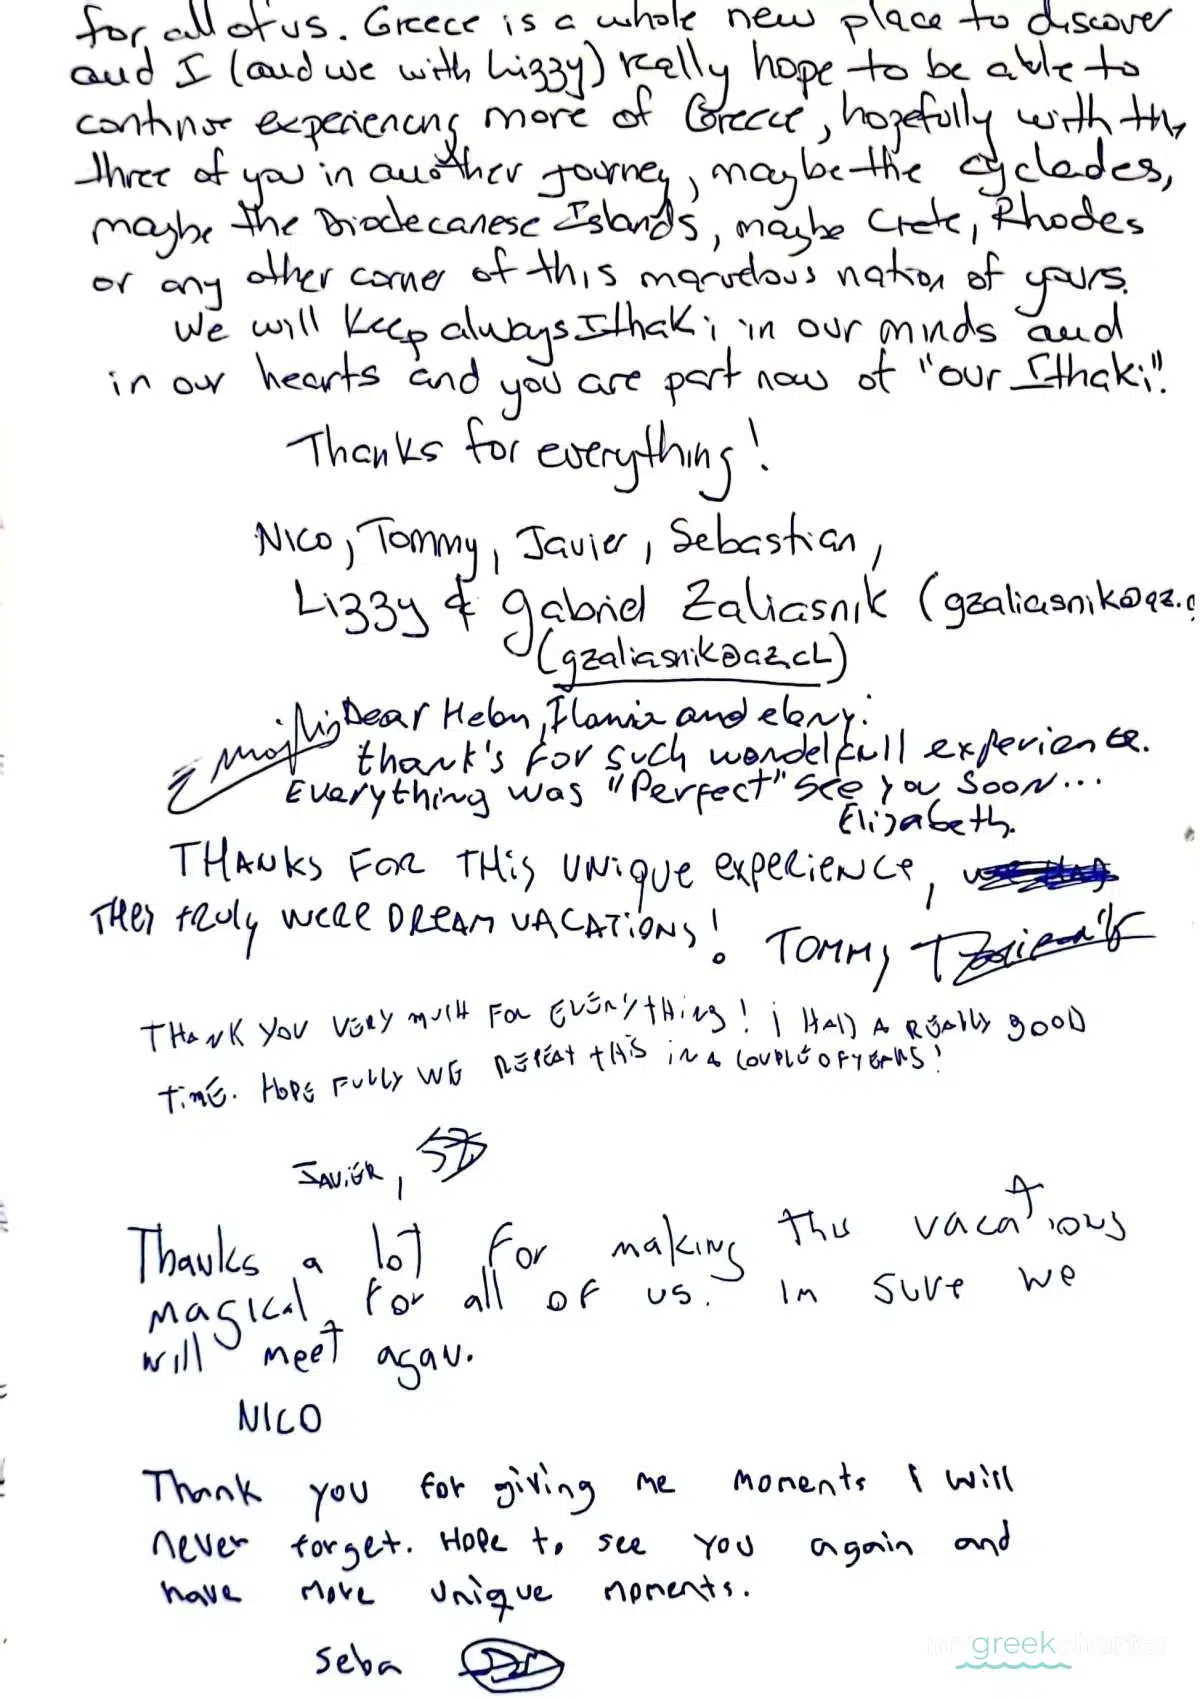 for all of us. Greece is a whole new place to discover
and I (and we with Lizzy) really hope to be able to
continue experiencing more of Greece, hopefully with the
three of you in another journey, maybe the cyclades,
maybe the Diodecanese Islands, maybe Crete, Rhodes
or any other corner of this marvelous nation of yours.
We will keep always Ithaki in our minds and
in our hearts and you are part now of "our Ithaki".
Thanks for everything!
Nico, Tommy, Javier, Sebastian,
Lizzy & gabriel Zaliasnik (gzaliasnik@az.c
(gzaliasnik@az.cL)
Dear Helen, and ebny:
thank's for such wondelfull experience.
Everything was "Perfect" see you soon...
Elizabeth.
THANKS FOR THIS UNIQUE EXPERIENCE,
THEY TRULY WERE DREAM VACATIONS!
TOMMY
THANK YOU VERY MUCH FOR EVERYTHING! i HAD A REALLY GOOD
TIME. HOPE FULLY WE REPEAT THIS IN A COUPLE OF YEARS!
JAVIER,
Thanks a lot for making this vacations
magical for all of us. Im sure we
will meet again.
NICO
Thank you for giving me moments I will
never forget. Hope to see you again and
have more unique moments.
seba
mygreekcharter